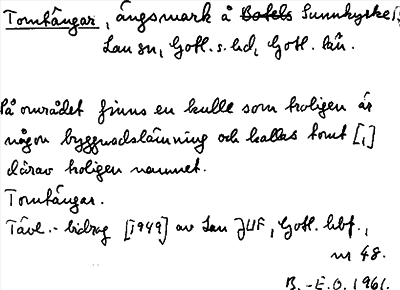 Tomtängar, ängsmark å Botels Sunnkyrke[,]
Lau sn, Gotl. s. hd, Gotl. län.
På området finns en kulle som troligen är
någon byggnadslämning och kallas tomt [,]
därav troligen namnet.
Tomtängar.
Tävl.-bidrag [1949] av Lau JUF, Gotl. hbf.,
nr 48.
B.-E.O. 1961.